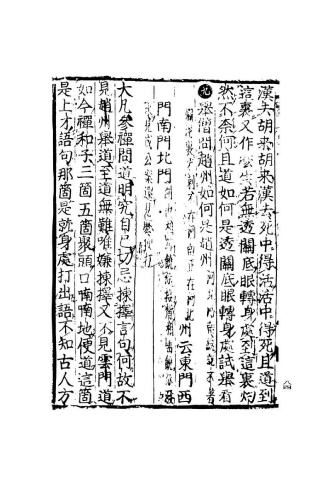 漢去胡來胡來漢去死中得活活中得死且道到
這裏又作麼生若無透關底眼轉身處到這裏灼
然不奈何且道如何是透關底眼轉身處試舉看
九 舉僧問趙州如何是趙州 河北河南總說不著
爛泥裏有刺不在河南正在河北 州云東門西
門南門北門
見成公案還見麼便打
大凡參禪問道明究自己切忌揀擇言句何故不
見趙州舉道至道無難唯嫌揀擇又不見雲門道
如今禪和子三箇五箇聚頭口喃喃地便道這箇
是上才語句那箇是就身處打出語不知古人方